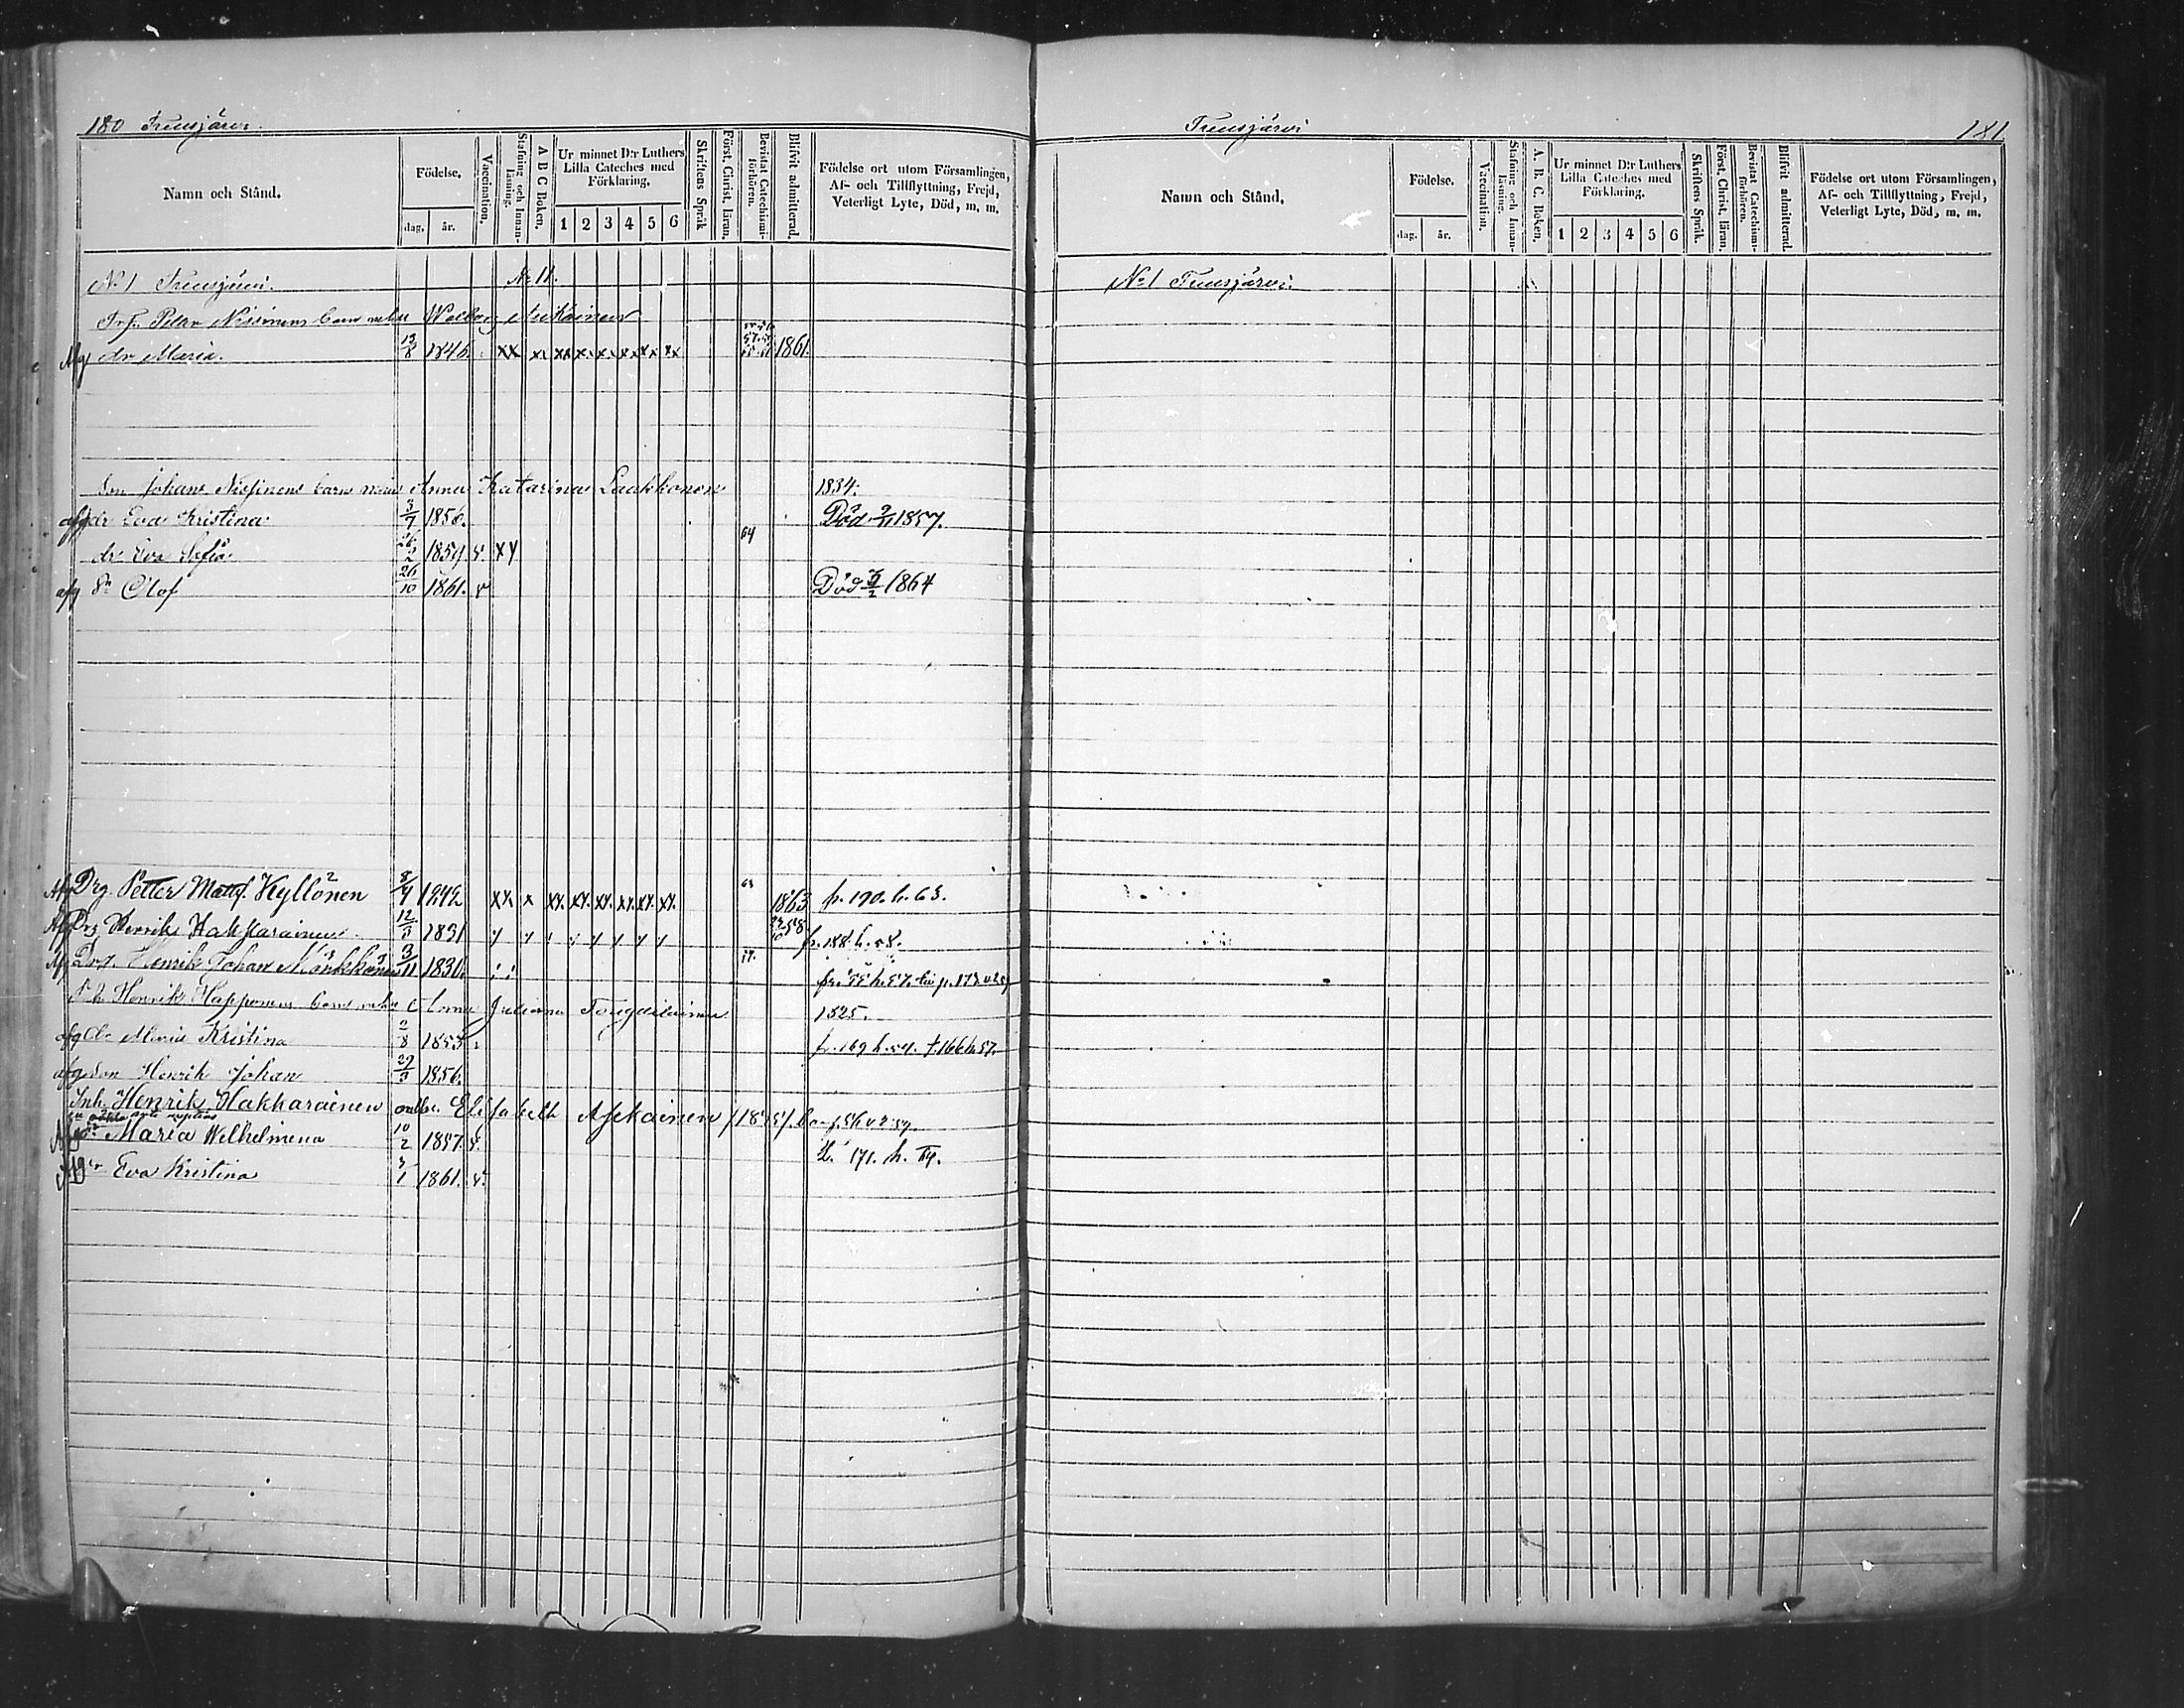 180 Truusjärvi.
Namn och Stånd.
Födelse.
dag. år.
Vaccination.
Stafning och Innan-läsning.
A B C Boken.
Ur minnet D:r Luthers Lilla Cateches med Förklaring.
1 2 3 4 5 6
Skriftens Språk
Först. Christ. läran.
Bevistat Catechismi-förhören.
Blifvit admitterad.
Födelse ort utom Församlingen, Af- och Tillflyttning, Frejd, Veterligt Lyte, Död, m. m.
No 1 Truusjärvi. No 11.
Petter Nissinens barn med Walborg
Afg dr Maria. 13/8 1846. xx x. 1861.
Son Johans Nissinens barn med Anna Katarina Laakkonen 1834.
afg dr Eva Kristina 3/7 1856. Död 9/11 1857.
dr Eva Sofia 26/2 1859 v. xy 64
afg Sn Olof 26/10 1861. v Död 5/2 1864
Afg Drg Petter Matts. Kyllönen 8/4 1842 xx. x xx. xx. xx. xx. xx. xx. 63 1863 fr. 190. h. 63.
Afg Drg Henrik Hakkarainen 12/3 1831 fr. 188. h. 58.
Afg Drg. Henrik Johan Mönkkönen 3/11 1830. 57.
Henrik Happonens barn med Anna Juliana 1825.
afg dr Maria Kristina 2/8 1853 f. 169 h. 54. t. 166 h. 57.
afg Son Henrik Johan 29/3 1856.
Inh. Henrik Hakkarainen Elisabeth Asikainen
Afg dr Maria Wilhelmina 10/2 1857. v. t. 171. h.
Afg dr Eva Kristina 1861. v.
Truusjärvi 181
Namn och Stånd.
Födelse.
dag. år.
Vaccination.
Stafning och Innan-läsning.
A. B. C. Boken.
Ur minnet D:r Luthers Lilla Cateches med Förklaring.
1 2 3 4 5 6
Skriftens Språk.
Först. Christ. läran.
Bevistat Catechismi-förhören.
Blifvit admitterad.
Födelse ort utom Församlingen, Af- och Tillflyttning, Frejd, Veterligt Lyte, Död, m. m.
No 1 Truusjärvi.